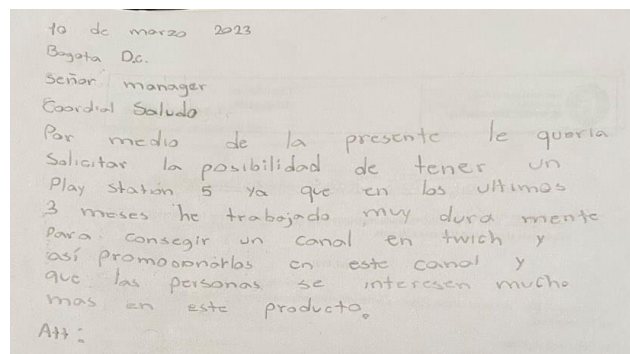 10 de marzo 2023
Bogota D.C.
Señor manager
Coordial Saludo
Por medio de la presente le quoria
Solicitar la posibilidad de tener un
Play Station 5 ya que en los ultimos
3 meses he trabajado muy dura mente
Para consegir un canal en twich y
así promocionarlos en este canal y
que las personas se interesen mucho
mas en este producto.
Att: